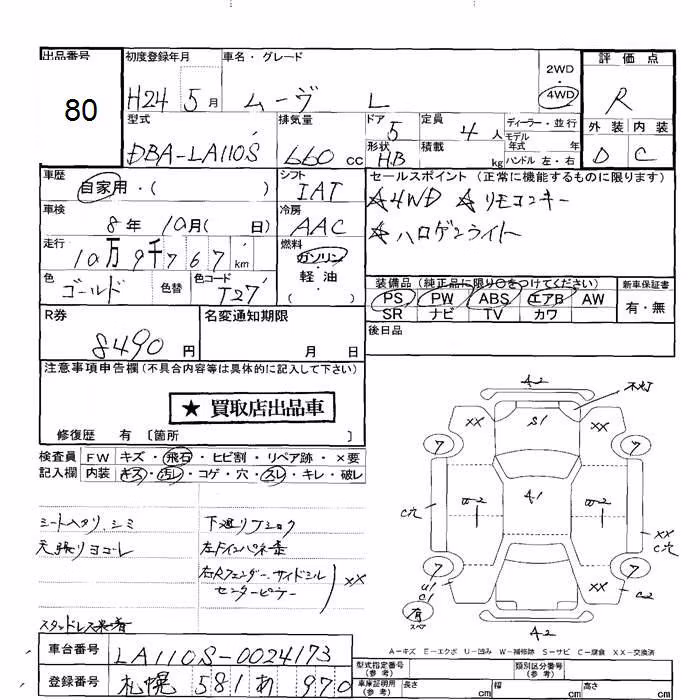 出品番号
80
初度登録年月
H24 5月
車名・グレード
ムーヴ L
2WD
・
4WD
評価点
R
外装 内装
D C
型式
DBA-LA110S
排気量
660 cc
ドア
5
形状
HB
定員
4人
積載
kg
ディーラー・並行
モデル
年式 年
ハンドル 左・右
車歴
自家用・( )
車検
8年 10月( 日)
走行
10万9千767km
色
ゴールド
色替
色コード
T27
シフト
IAT
冷房
AAC
燃料
ガソリン
軽油
( )
セールスポイント (正常に機能するものに限ります)
☆4WD ☆リモコンキー
☆ハロゲンライト
装備品 (純正品に限り○をつけてください)
PS PW ABS エアB AW
SR ナビ TV カワ
新車保証書
有・無
後日品
R券
8490 円
名変通知期限
月 日
注意事項申告欄 (不具合内容等は具体的に記入して下さい)
★ 買取店出品車
修復歴 有 〔箇所 〕
検査員 FW キズ・飛石・ヒビ割・リペア跡・×要
記入欄 内装 キズ・汚レ・コゲ・穴・スレ・キレ・破レ
シートヘタリ、シミ
天張リヨゴレ
下廻リフショク
左Fインパネ歪
右Rフェンダー、サイドシル
センターピラー
XX
スタッドレス
車台番号 LA110S-0024173
登録番号 札幌 581 あ 970
A2
不灯
XX
S1
XX
7
7
C穴
W2
A1
W2
XX
C穴
7
7
U1
C1
XX
C2
有
スペア
A2
A-キズ E-エクボ U-凹み W-補修跡 S-サビ C-腐食 XX-交換済
型式指定番号
(参考)
類別区分番号
(参考)
車庫証明用
(参考)
長さ cm
幅 cm
高さ cm